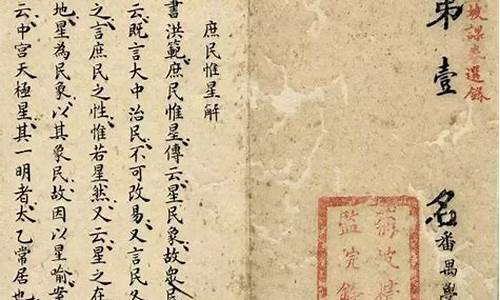 坡課卷選錄
第壹名番禺學
庶民惟星解
書洪範庶民惟星傳云星民象故眾民
云既言大中治民不可改易又言民各
之言庶民之性惟若星然又云星之在
地星為民象以其象民故因以星喻案
云中宮天極星其一明者太乙常居也